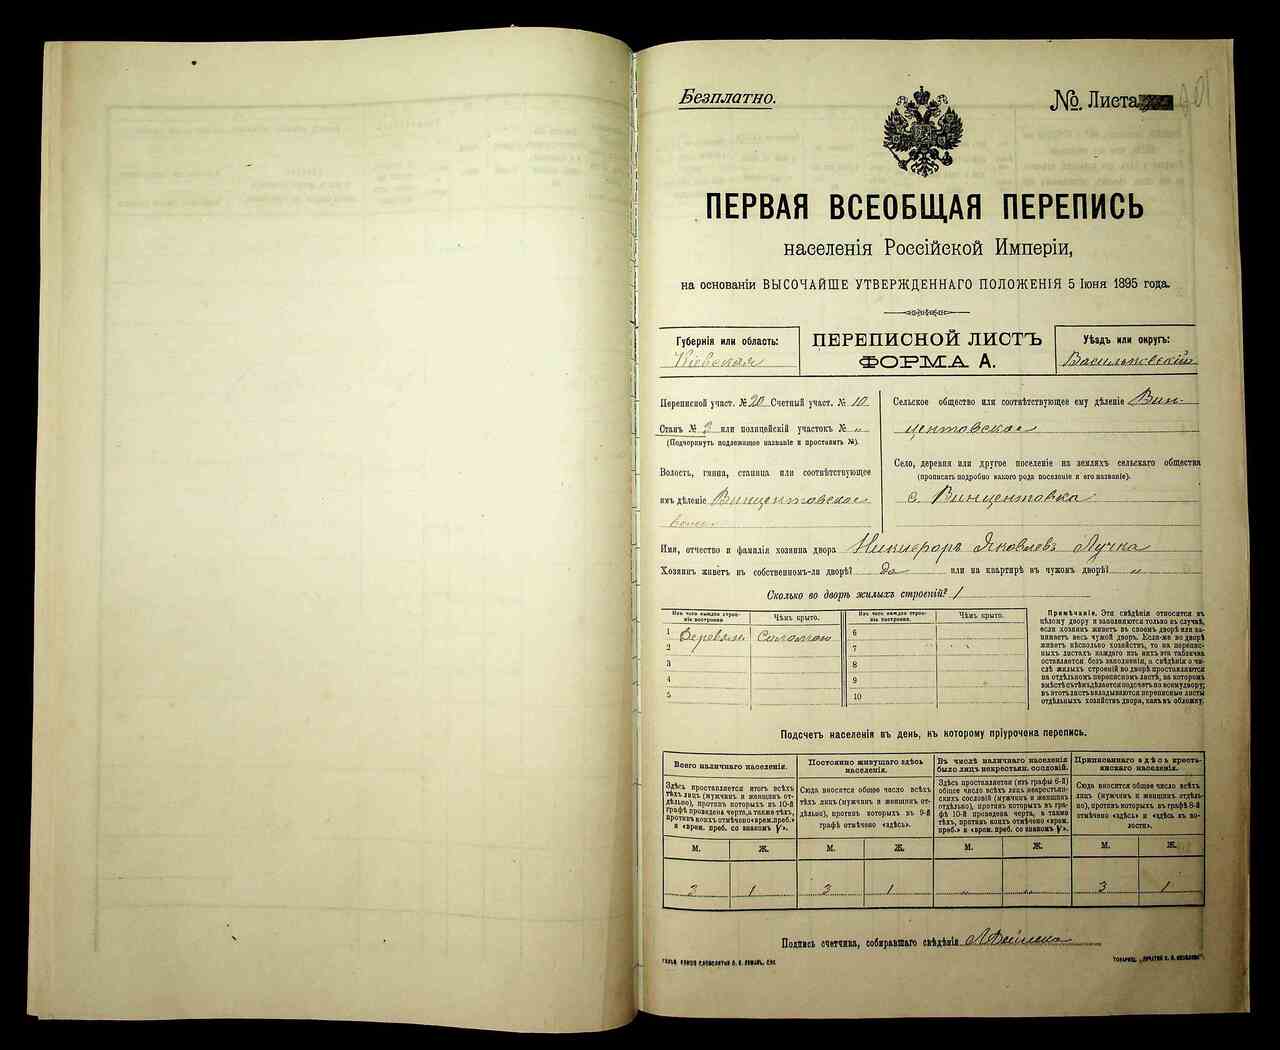 Безплатно.
№. Листа
ПЕРВАЯ ВСЕОБЩАЯ ПЕРЕПИСЬ
населенія Россійской Имперіи,
на основаніи ВЫСОЧАЙШЕ УТВЕРЖДЕННАГО ПОЛОЖЕНІЯ 5 Іюня 1895 года.
Губернія или область:
Кіевская
ПЕРЕПИСНОЙ ЛИСТЪ
ФОРМА А.
Уѣздъ или округъ:
Васильковскій
Переписной участ. № 20 Счетный участ. № 10
Станъ № 3 или полицейскій участокъ № „
(Подчеркнуть подлежащее названіе и проставить №).
Волость, гмина, станица или соотвѣтствующее
имъ дѣленіе Винцентовская
волость
Сельское общество или соотвѣтствующее ему дѣленіе Вин-
центовское
Село, деревня или другое поселеніе на земляхъ сельскаго общества
(прописать подробно какого рода поселеніе и его названіе).
с. Винцентовка
Имя, отчество и фамилія хозяина двора Никифоръ Яковлевъ Лучка
Хозяинъ живетъ въ собственномъ-ли дворѣ? Да или на квартирѣ въ чужомъ дворѣ? „
Сколько во дворѣ жилыхъ строеній? 1
Изъ чего каждое строе-
ніе построено
Чѣмъ крыто.
1 Деревян Соломою
2
3
4
5
Изъ чего каждое строе-
ніе построено.
Чѣмъ крыто.
6
7
8
9
10
Примѣчаніе. Эти свѣдѣнія относятся къ
цѣлому двору и заполняются только въ случаѣ,
если хозяинъ живетъ въ своемъ дворѣ или за-
нимаетъ весь чужой дворъ. Если-же во дворѣ
живетъ нѣсколько хозяйствъ, то на перепис-
ныхъ листахъ каждаго изъ нихъ эта табличка
оставляется безъ заполненія, а свѣдѣнія о чи-
слѣ жилыхъ строеній во дворѣ проставляются
на отдѣльномъ переписномъ листѣ, на которомъ
вмѣстѣ съ тѣмъ дѣлается подсчетъ по всему двору;
въ этотъ листъ вкладываются переписные листы
отдѣльныхъ хозяйствъ двора, какъ въ обложку.
Подсчетъ населенія въ день, къ которому пріурочена перепись.
Всего наличнаго населенія.
Здѣсь проставляется итогъ всѣхъ
тѣхъ лицъ (мужчинъ и женщинъ от-
дѣльно), противъ которыхъ въ 10-й
графѣ проведена черта, а также тѣхъ,
противъ коихъ отмѣчено «врем. преб.»
и «врем. преб. со знакомъ V».
М. Ж.
3 1
Постоянно живущаго здѣсь
населенія.
Сюда вносится общее число всѣхъ
тѣхъ лицъ (мужчинъ и женщинъ от-
дѣльно), противъ которыхъ въ 9-й
графѣ отмѣчено «здѣсь».
М. Ж.
3 1
Въ числѣ наличнаго населенія
было лицъ некрестьян. сословій.
Здѣсь проставляется (изъ графы 6-й)
общее число всѣхъ лицъ некрестьян-
скихъ сословій (мужчинъ и женщинъ
отдѣльно), противъ которыхъ въ гра-
фѣ 10-й проведена черта, а также
тѣхъ, противъ коихъ отмѣчено «врем.
преб.» и «врем. преб. со знакомъ V».
М. Ж.
„ „
Приписаннаго здѣсь кресть-
янскаго населенія.
Сюда вносится общее число всѣхъ
лицъ (мужчинъ и женщинъ отдѣль-
но), противъ которыхъ въ графѣ 8-й
отмѣчено «здѣсь» и «здѣсь въ во-
лости».
М. Ж.
3 1
Подпись счетчика, собиравшаго свѣдѣнія